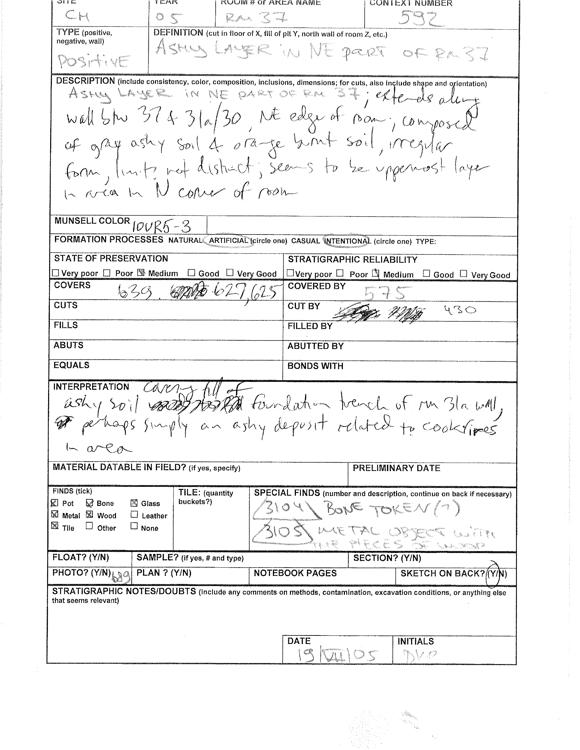 SITE YEAR ROOM # or AREA NAME CONTEXT NUMBER
CH 05 RM 37 592
TYPE (positive, negative, wall) DEFINITION (cut in floor of X, fill of pit Y, north wall of room Z, etc.)
POSITIVE ASHY LAYER IN NE PART OF RM 37
DESCRIPTION (include consistency, color, composition, inclusions, dimensions; for cuts, also include shape and orientation)
ASHY LAYER IN NE PART OF RM 37; extends along
wall btw 37 & 31a/30, NE edge of room; composed
of gray ashy soil & orange burnt soil, irregular
form, limits not distinct; seems to be uppermost layer
in area in N corner of room
MUNSELL COLOR 10YR5-3
FORMATION PROCESSES NATURAL ARTIFICIAL (circle one) CASUAL INTENTIONAL (circle one) TYPE:
STATE OF PRESERVATION STRATIGRAPHIC RELIABILITY
☐ Very poor ☐ Poor ☒ Medium ☐ Good ☐ Very Good ☐ Very poor ☐ Poor ☒ Medium ☐ Good ☐ Very Good
COVERS 639, 627, 625 COVERED BY 575
CUTS CUT BY 430
FILLS FILLED BY
ABUTS ABUTTED BY
EQUALS BONDS WITH
INTERPRETATION fill of
ashy soil foundation trench of rm 31a wall,
perhaps simply an ashy deposit related to cookfires
in area
MATERIAL DATABLE IN FIELD? (if yes, specify) PRELIMINARY DATE
FINDS (tick) TILE: (quantity buckets?) SPECIAL FINDS (number and description, continue on back if necessary)
☒ Pot ☒ Bone ☒ Glass 3104 BONE TOKEN (?)
☒ Metal ☒ Wood ☐ Leather 3105 METAL OBJECT WITH
☒ Tile ☐ Other ☐ None PIECES OF WOOD
FLOAT? (Y/N) SAMPLE? (if yes, # and type) SECTION? (Y/N)
PHOTO? (Y/N) 689 PLAN ? (Y/N) NOTEBOOK PAGES SKETCH ON BACK? (Y/N)
STRATIGRAPHIC NOTES/DOUBTS (Include any comments on methods, contamination, excavation conditions, or anything else
that seems relevant)
DATE INITIALS
19/VII/05